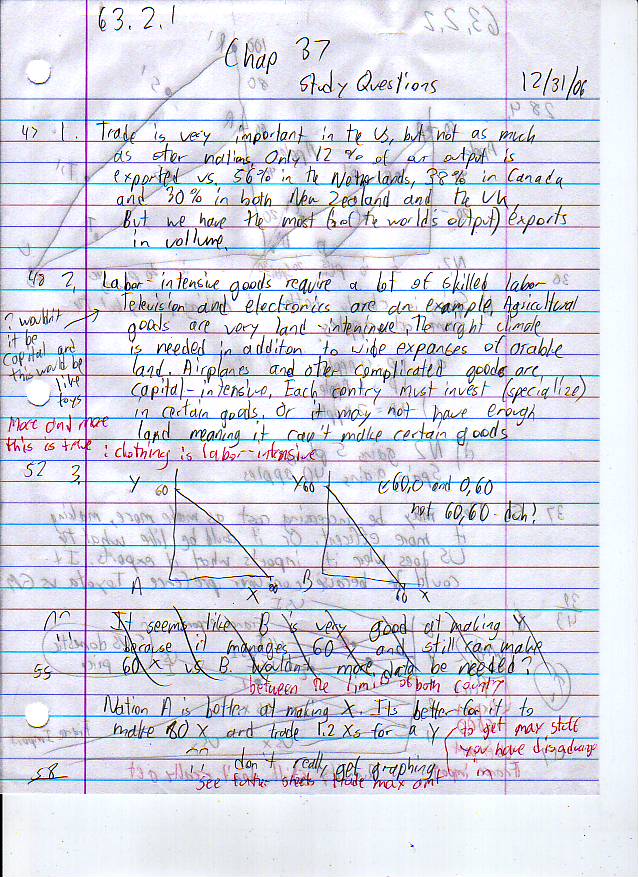 63.2.1
Chap 37
Study Questions 12/31/06
1. Trade is very important in the US, but not as much
as other nations. Only 12% of our output is
exported vs. 56% in the Netherlands, 38% in Canada
and 30% in both New Zealand and the UK.
But we have the most (of the worlds output) exports
in vollume.
48 2. Labor-intensive goods require a lot of skilled labor
Television and electronics are an example. Agricultural
goods are very land-intensive. The right climate
is needed in additon to wide expanses of arable
land. Airplanes and other complicated goods are
capital-intensive. Each contry must invest (specialize)
in certain goods. Or it may not have enough
land meaning it can't make certain goods
? wouldn't
it be
capital and
this would be
like
toys
More and more
this is true : clothing is labor-intensive
52 3.
Y 60 Y 60 60,0 and 0,60
not 60,60 - duh!
A X 80 B 60 X
It seems like B is very good at making Y
because it manages 60 X and still can make
55 60 X vs B. Wouldn't more data be needed?
between the limits of both county
Nation A is better at making X. Its better for it to
make 80 X and trade 1.2 Xs for a Y
to get max stuff
you have disadvantage
don't really get graphing
58 see further sheets: trade max amt